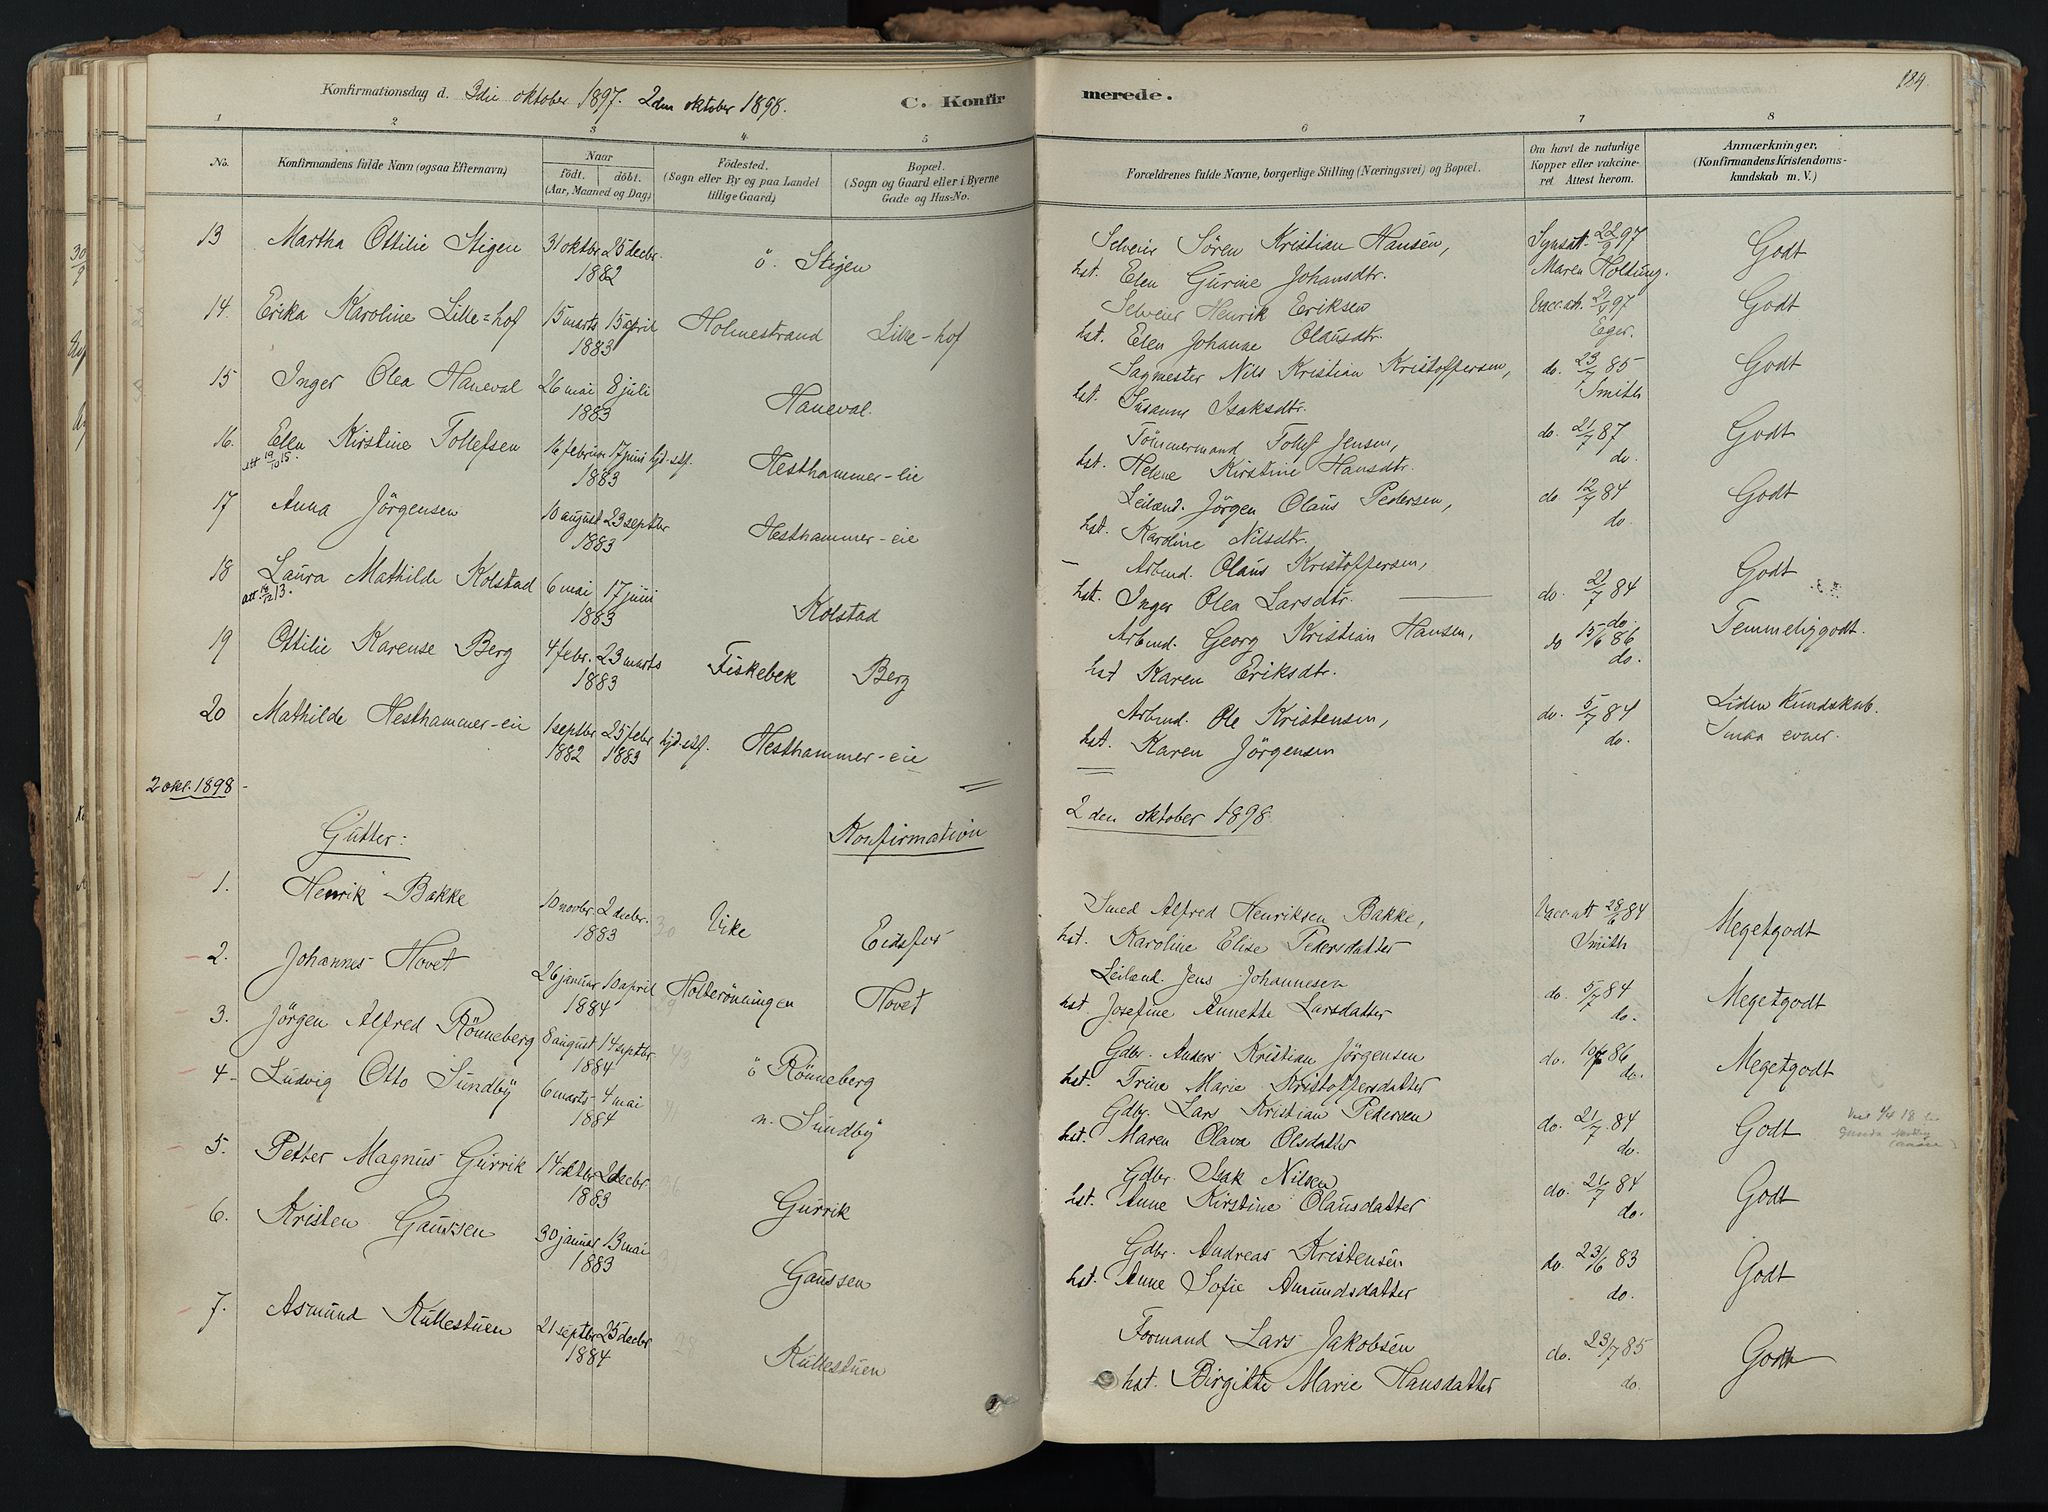 184.
Konfirmationsdag d. 3die oktober 1897. 2den oktober 1898. C. Konfirmerede.
1 2 3 4 5 6 7 8
No. Konfirmandens fulde Navn (ogsaa Efternavn) Naar födt. döbt. (Aar, Maaned og Dag) Födested. (Sogn eller By og paa Landet tillige Gaard) Bopæl. (Sogn og Gaard eller i Byerne Gade og Hus-No. Forældrenes fulde Navne, borgerlige Stilling (Næringsvei) og Bopæl. Om havt de naturlige Kopper eller vakcineret. Attest herom. Anmærkninger. (Konfirmandens Kristendomskundskab m. V.)
13 Martha Ottilie Stigen 31 oktbr. 25 decbr. 1882 ö. Stigen Selveier Sören Kristian Hansen, Synsatt. 22/9 97 Godt
hst. Elen Gurine Johansdtr. Maren Holtung.
14. Erika Karoline Lille=hof 15 marts 15 april 1883 Holmestrand Lille-hof Selveier Henrik Eriksen Vacc.att. 21/9 97 Godt
hst. Elen Johanne Olausdtr. Eger.
15 Inger Olea Haneval 26 mai 8 juli 1883 Haneval. Sagmester Nils Kristian Kristoffersen, do. 23/7 85 Godt
hst. Susanne Isaksdtr. Smith
16. Elen Kirstine Tollefsen 16 februar 17 juni 1883 hjd.stf. Hesthammer-eie Tömmermand Tollef Jensen, do. 21/7 87 Godt
att 19/10 15. hst. Helene Kirstine Hansdtr. do.
17 Anna Jörgensen 10 august 23 septbr 1883 Hesthammer-eie Leiland. Jörgen Olaus Pedersen, do 12/7 84 Godt
hst. Karoline Nilsdtr. do.
18 Laura Mathilde Kolstad 6 mai 17 juni 1883 Kolstad Arbmd. Olaus Kristoffersen, Godt
att. 16/12 13. hst. Inger Olea Larsdtr. do. 21/7 84 do.
19 Ottilie Karense Berg 4 febr. 23 marts 1883 Fiskebek Berg Arbmd. Georg Kristian Hansen, do 15/6 86 Temmeliggodt.
hst Karen Eriksdtr. do.
20 Mathilde Hesthammer-eie 1 septbr 1882 25 febr 1883 hjd.stf. Hesthammer-eie Arbmd. Ole Kristensen, do. 5/7 84 Liden Kundskab.
hst. Karen Jörgensen do. Smaa evner.
2 okt. 1898 2 den oktober 1898.
Gutter: Konfirmation
1. Henrik Bakke 10 novbr. 2 decbr. 1883 30 Vike Eidsfos Smed Alfred Henriksen Bakke, Vacc.att 28/6 84 Megetgodt
hst. Karoline Elise Pedersdatter Smith
2. Johannes Hovet 26 januar 10 april 1884 Holterönningen Hovet Leiland. Jens Johannesen do. 5/7 84 Megetgodt
hst Josefine Annette Larsdatter do.
3. Jörgen Alfred Rönneberg 8 august 14 septbr. 1884 43 ö Rönneberg Gdbr. Anders Kristian Jörgensen do. 86 Megetgodt
hst. Trine Marie Kristoffersdatter do.
4- Ludvig Otto Sundby 6 marts- 4 mai 1884 n. Sundby Gdbr. Lars Kristian Pedersen do. 21/7 84 Godt
hst. Maren Olava Olsdatter do.
5. Petter Magnus Gurrik 14 oktbr 2 decbr. 1883 36 Gurrik Gdbr. Isak Nilsen do. 21/7 84 Godt
hst. Anne Kirstine Olausdatter do.
6. Kristen Gaussen 30 januar 13 mai 1883 Gaussen Gdbr. Andreas Kristensen do. 23/6 83 Godt
hst. Anne Sofie Amundsdatter do.
7. Asmund Kullestuen 21 septbr 25 decbr 1884 28 Kullestuen Formand Lars Jakobsen do. 23/7 85 Godt
hst. Birgitte Marie Hansdatter do.